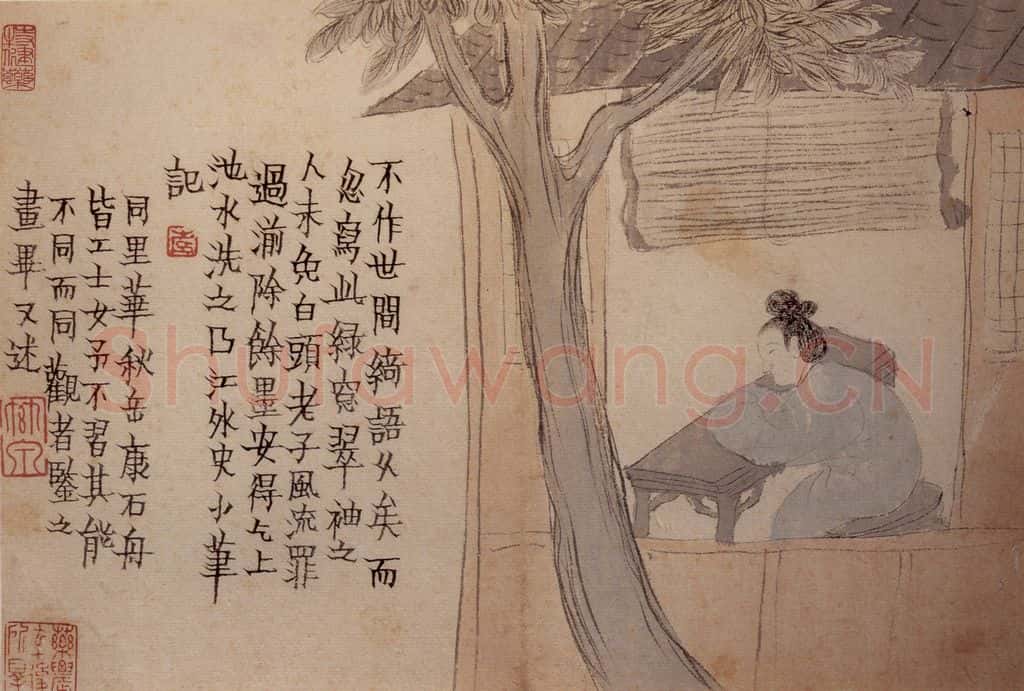 不作世間綺語久矣而
忽寫此緑窓翠袖之
人未免白頭老子風流罪
過湔除餘墨安得乞上
池水洗之曲江外史小筆
記
同里華秋岳康石舟
皆工士女予不習其能
不同而同觀者鑒之
畫畢又述
Shufawang.CN